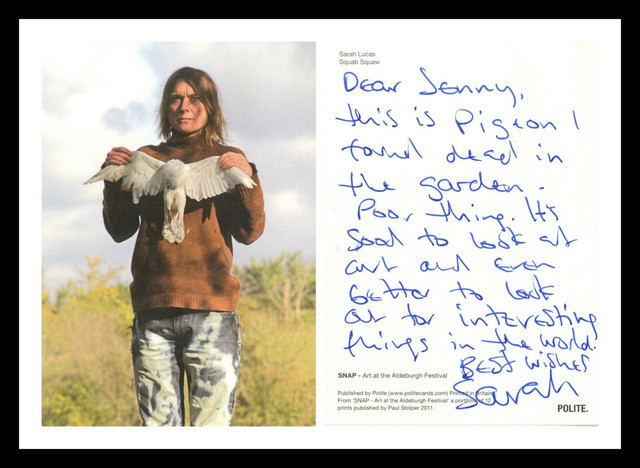 Sarah Lucas
Squab Squaw
Dear Jenny,
this is Pigeon I
found dead in
the garden.
Poor thing. It's
Good to look at
art and even
better to look
out for interesting
things in the world.
Best wishes
Sarah
SNAP - Art at the Aldeburgh Festival
Published by Polite (www.politecards.com) Printed in Britain
From 'SNAP - Art at the Aldeburgh Festival' a portfolio of 12
prints published by Paul Stolper 2011.
POLITE.